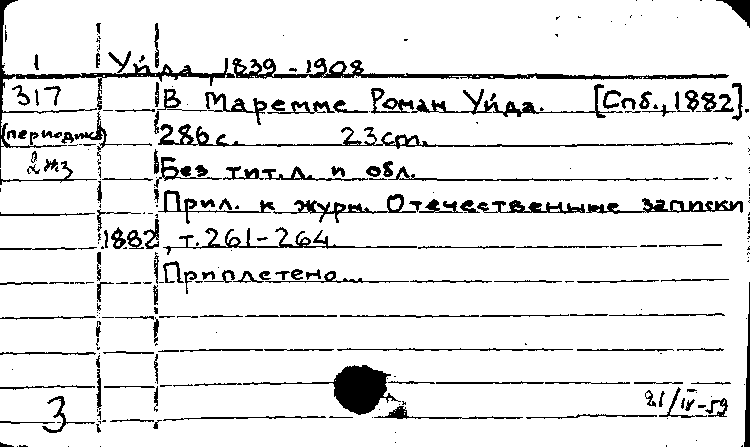 1 Уйда, 1839-1908
317 В Маремме Роман Уйда. [Спб., 1882].
(периодика) 286 с. 23cm.
Без тит. л. и обл.
Прил. к журн. Отечественные записки
1882, т. 261-264
Приплетено...
3 21/IV-59